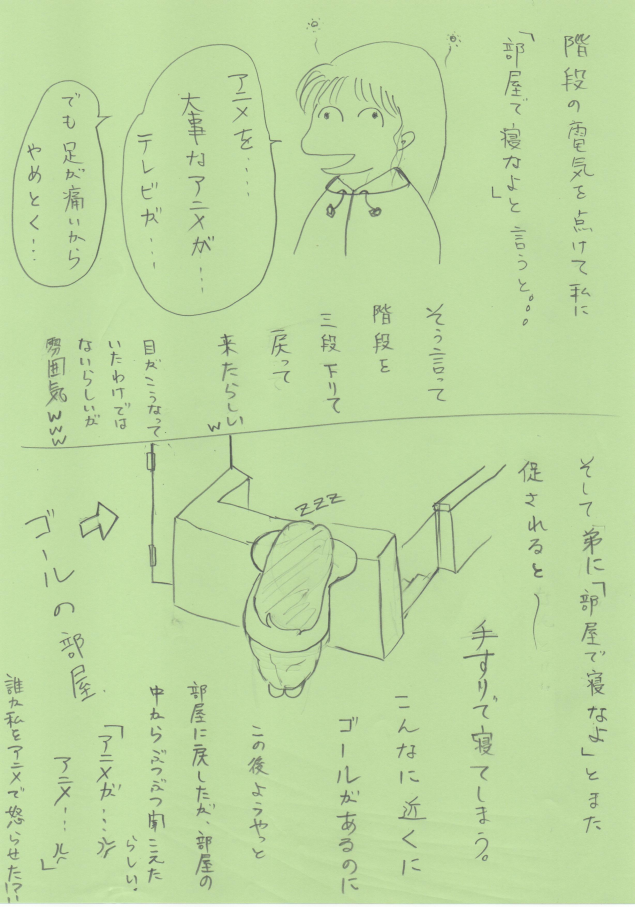 階段の電気を点けて私に
「部屋で寝なよ」と言うと。。。
アニメを‥‥
大事なアニメが‥‥
テレビが‥‥
でも足が痛いから
やめとく‥‥
そう言って
階段を
三段下りて
戻って
来たらしいw
目がこうなって
いたわけでは
ないらしいが
雰囲気www
そして弟に「部屋で寝なよ」とまた
促されると〜
手すりで寝てしまう。
こんなに近くに
ゴールがあるのに
zzz
この後ようやっと
部屋に戻したが、部屋の
中からぶつぶつ聞こえた
らしい。
「アニメが‥‥
アニメ‥‥」
ゴールの部屋
誰か私をアニメで怒らせた!?